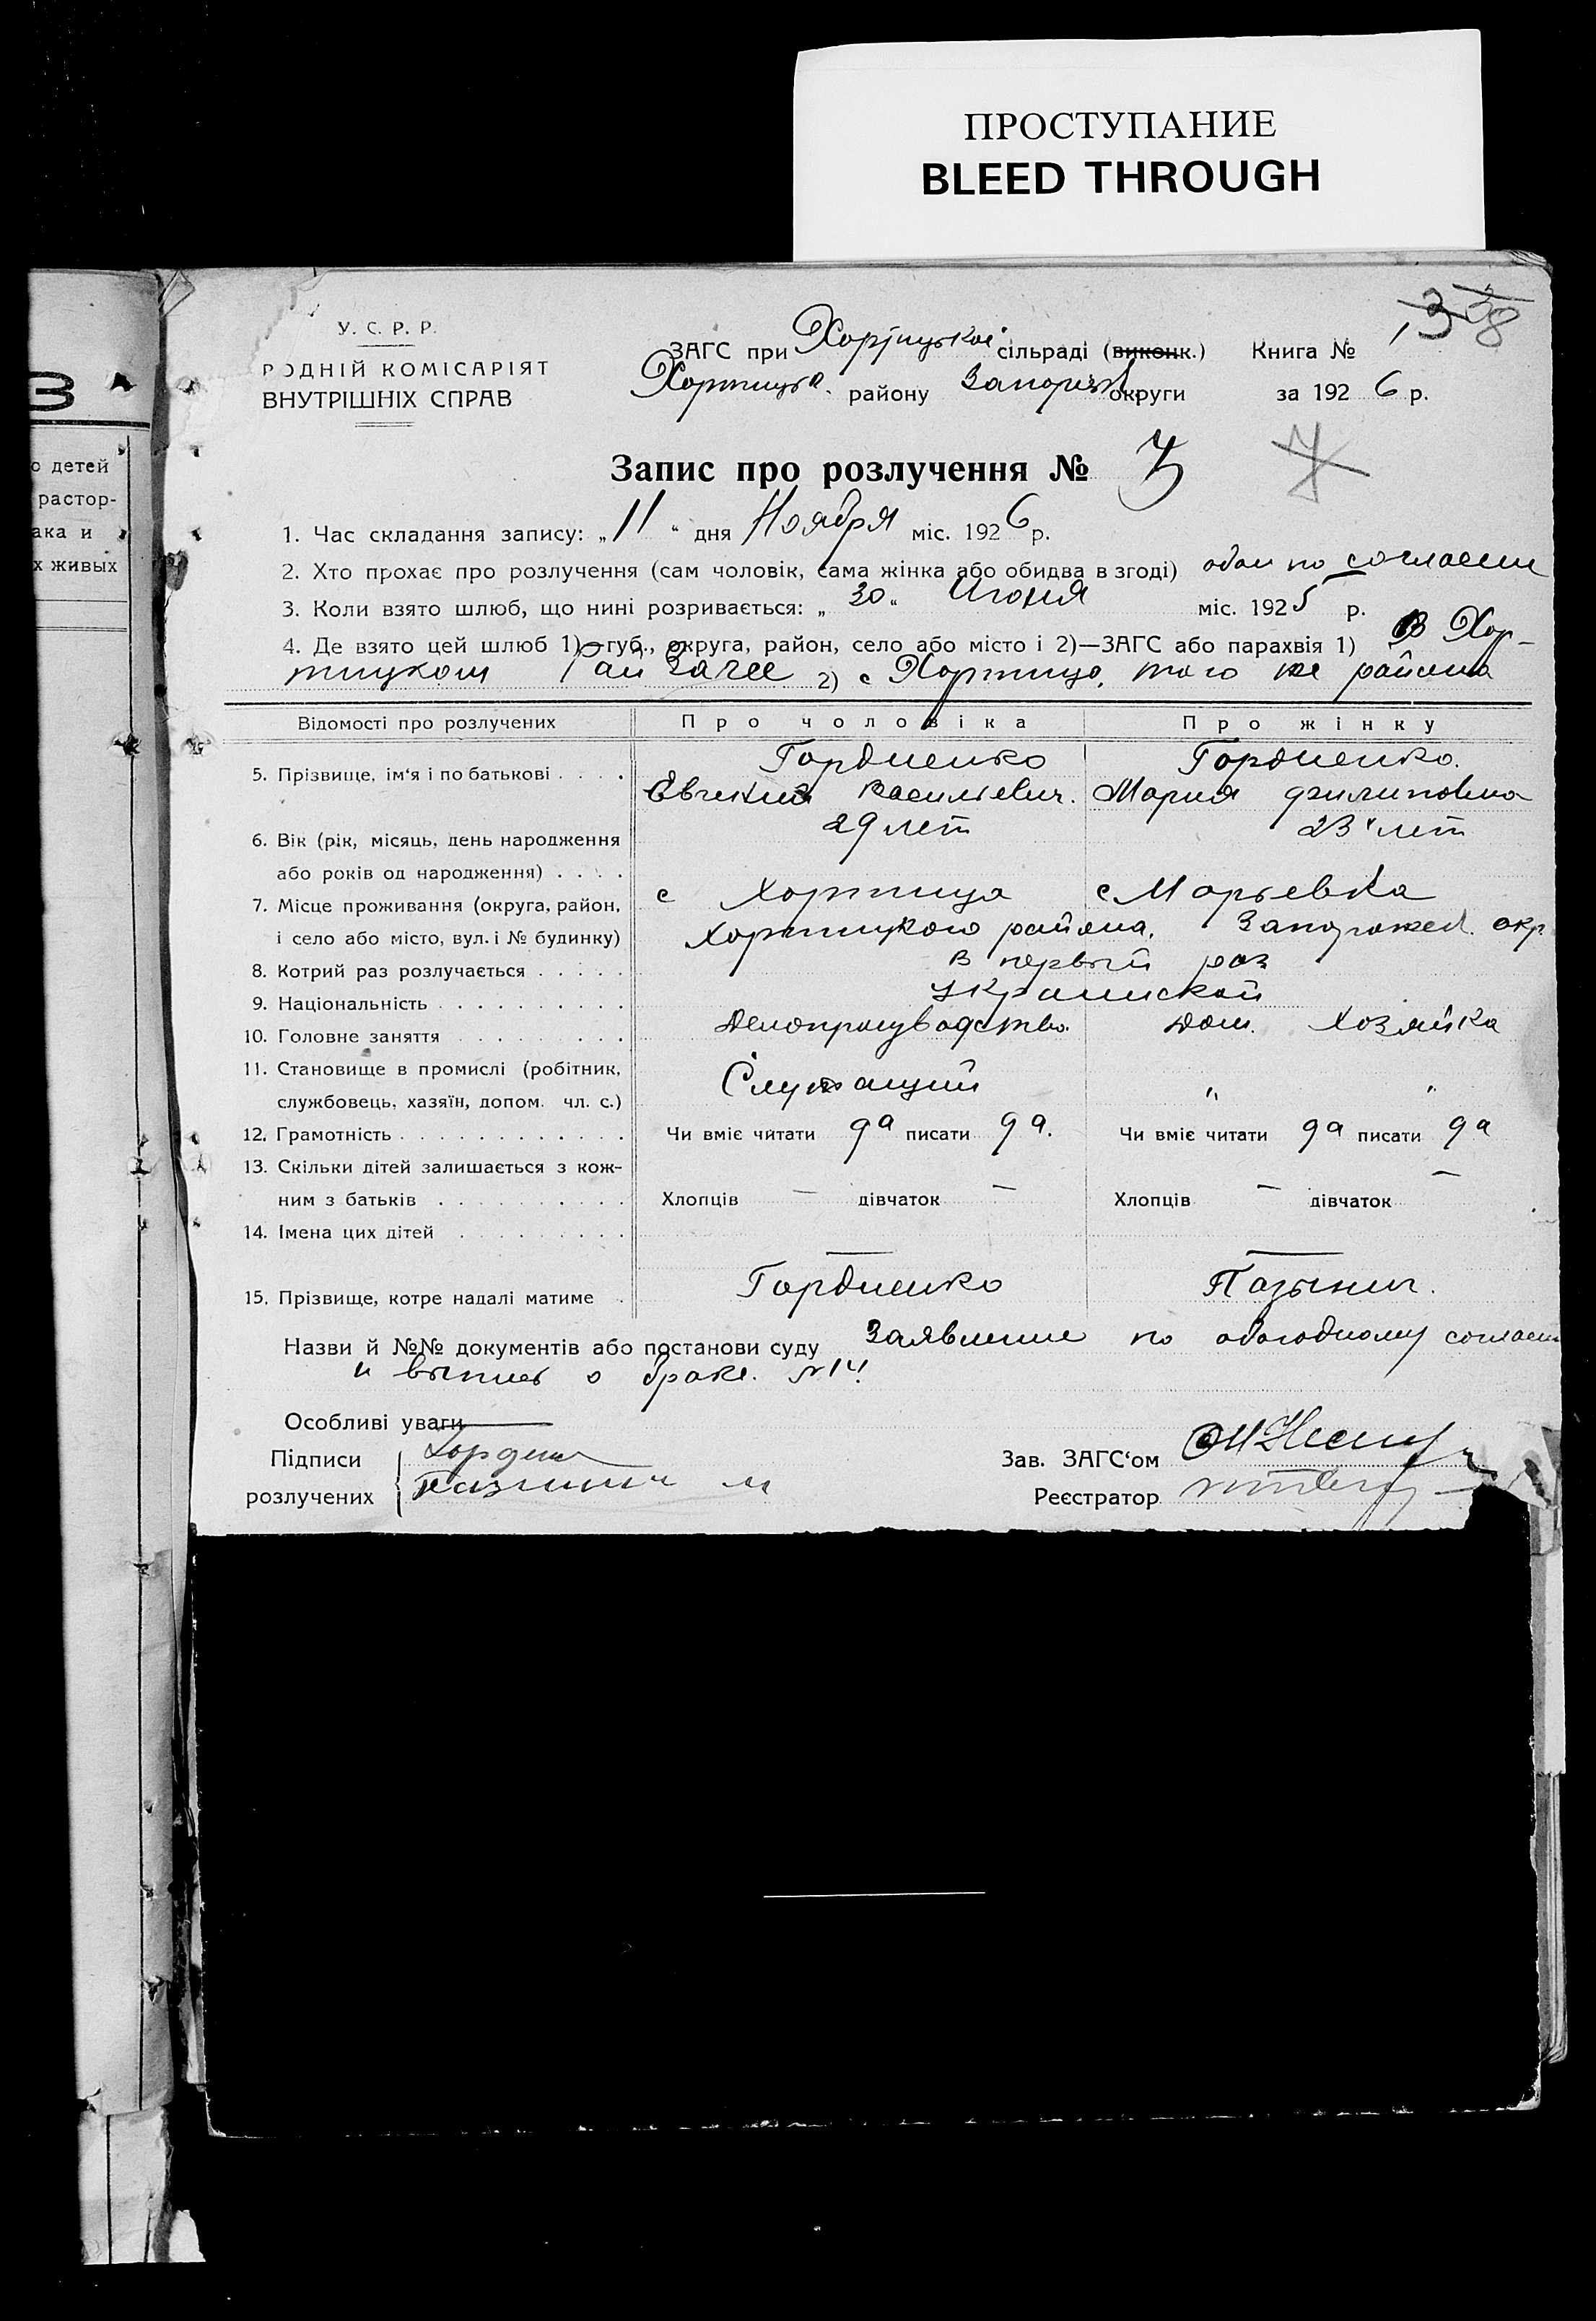 ПРОСТУПАНИЕ
BLEED THROUGH
У. С. Р. Р.
РОДНІЙ КОМІСАРІЯТ
ВНУТРІШНІХ СПРАВ
ЗАГС при Хортицької сільраді (виконк.) Книга №
38
Хортицьк. району Запорізьк округи за 1926 р.
Запис про розлучення № 3
1. Час складання запису: „11“ дня Ноября міс. 1926 р.
2. Хто прохає про розлучення (сам чоловік, сама жінка або обидва в згоді) обои по согласии
3. Коли взято шлюб, що нині розривається: „30“ Июня міс. 1925 р.
4. Де взято цей шлюб 1)—губ., округа, район, село або місто і 2)—ЗАГС або парахвія 1) В Хор-
тицком Рай Загсе 2) с Хортицо, того же района
Відомості про розлучених Про чоловіка Про жінку
Гордиенко Гордиенко.
5. Прізвище, ім‘я і по батькові . . . . Евгений Васильевич. Мария Филиповна
29 лет 23 лет
6. Вік (рік, місяць, день народження
або років од народження) . . . .
с Хортица с Марьевка
7. Місце проживання (округа, район,
Хортицкого района, Запорожск. окр
і село або місто, вул. і № будинку)
в первый раз
8. Котрий раз розлучається . . . . .
украинской
9. Національність . . . . . . . . . .
10. Головне заняття . . . . . . . . . Делопроизводство. Дом. Хозяйка
11. Становище в промислі (робітник, Служащий „ „
службовець, хазяїн, допом. чл. с.)
12. Грамотність . . . . . . . . . . . . Чи вміє читати да писати да. Чи вміє читати да писати да
13. Скільки дітей залишається з кож-
ним з батьків . . . . . . . . . . Хлопців — дівчаток — Хлопців — дівчаток —
14. Імена цих дітей . . . . . . . . .
— —
15. Прізвище, котре надалі матиме . Гордиенко Пазынич.
Назви й №№ документів або постанови суду Заявление по обоюдному согласи
и выпись о браке. №14.
Особливі уваги —
Підписи Гордиен Зав. ЗАГС‘ом
розлучених Пазинич М Реєстратор
З
о детей
растор-
ака и
х живых